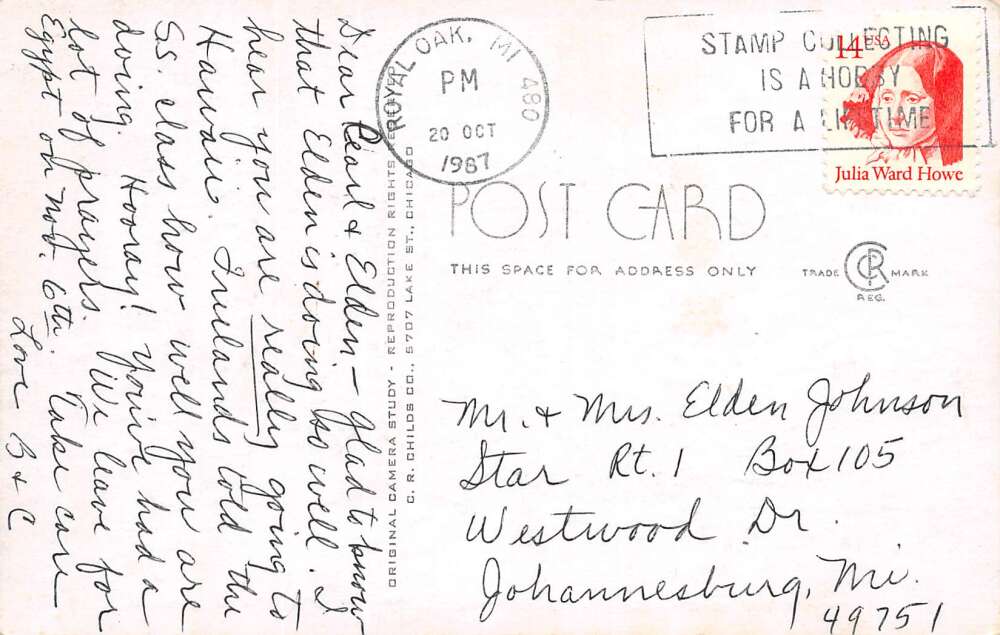 Dear Pearl & Elden - glad to know
that Elden is doing so well. I
hear you are really going to
Hawaii. Irelands told the
SS. class how well you are
doing. Hooray! You've had a
lot of prayers. We leave for
Egypt on Nov. 6th. Take care
Love B & C
ORIGINAL CAMERA STUDY - REPRODUCTION RIGHTS RESERVED
C. R. CHILDS CO., 5707 LAKE ST., CHICAGO
ROYAL OAK, MI 480
PM
20 OCT
1987
STAMP COLLECTING
IS A HOBBY
FOR A LIFETIME
14 USA
Julia Ward Howe
POST CARD
THIS SPACE FOR ADDRESS ONLY
TRADE CRP MARK
REG.
Mr. & Mrs. Elden Johnson
Star Rt. 1 Box 105
Westwood Dr.
Johannesburg, Mi.
49751